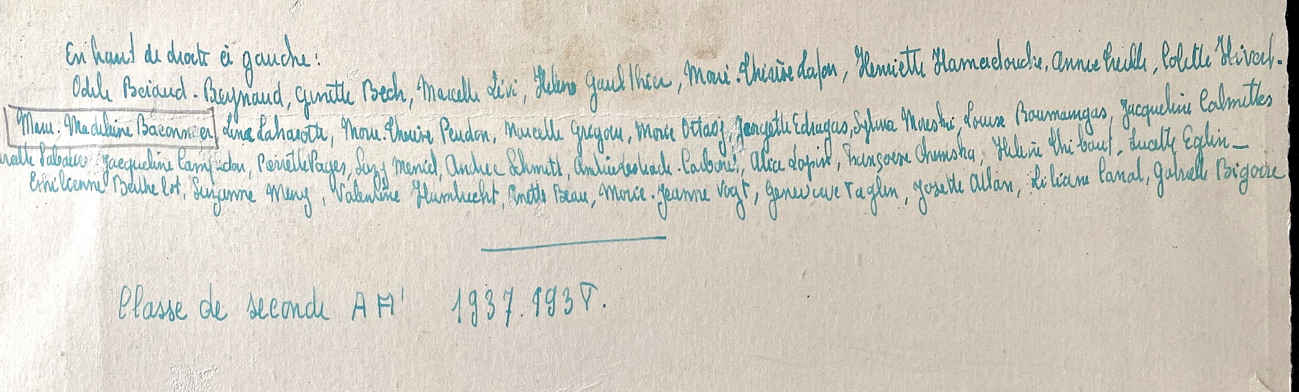 En haut de droite à gauche:
Odile Beraud. Beynaud, Ginette Bech, Marcelle Lévi, Hélène Gaulthier, Marie. Thérèse Lafon, Henriette Hamerdouche, Annie Ceille, Colette Hivert.
Marie. Madeleine Baconnier, Lina Laharotte, Marie. Thérèse Peudon, Marcelle Gregou, Marie Ottavj, Jeanyotte Edragas, Sylvia Moeshe, Louise Baumangas, Jacqueline Calmettes
Jacqueline Campredon, Pierrette Pages, Suzy Menid, Andrée Schmitt, Alice Lapin, Françoise Chemska, Hélène Thibout, Lucette Eglin_
Berthelot, Suzanne Meny, Valentine Humbrecht, Ginette Beau, Marie. Jeanne Vogt, Geneviève Taglin, Josette Allan, Liliane Canal, Gabrielle Bigorre
Classe de seconde AA' 1937.1938.